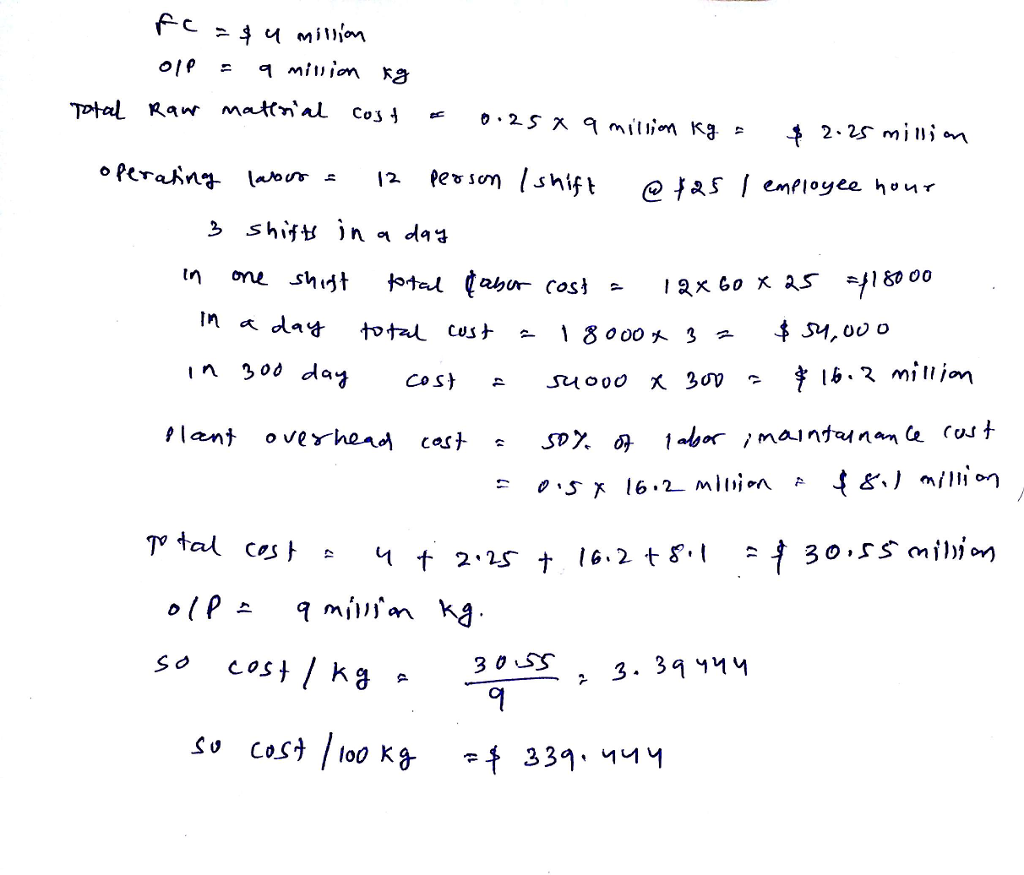 FC = $ 4 million
O/P = 9 million kg
Total Raw material cost = 0.25 x 9 million kg = $ 2.25 million
operating labor = 12 person / shift @ $25 / employee hour
3 shifts in a day
in one shift total labor cost = 12 x 60 x 25 = $18000
in a day total cost = 18000 x 3 = $ 54,000
in 300 day cost = 54000 x 300 = $ 16.2 million
Plant overhead cost = 50% of labor ; maintainance cost
= 0.5 x 16.2 million = $ 8.1 million
Total cost = 4 + 2.25 + 16.2 + 8.1 = $ 30.55 million
O/P = 9 million kg.
so cost / kg = 30.55 / 9 = 3.39444
so cost / 100 kg = $ 339.444